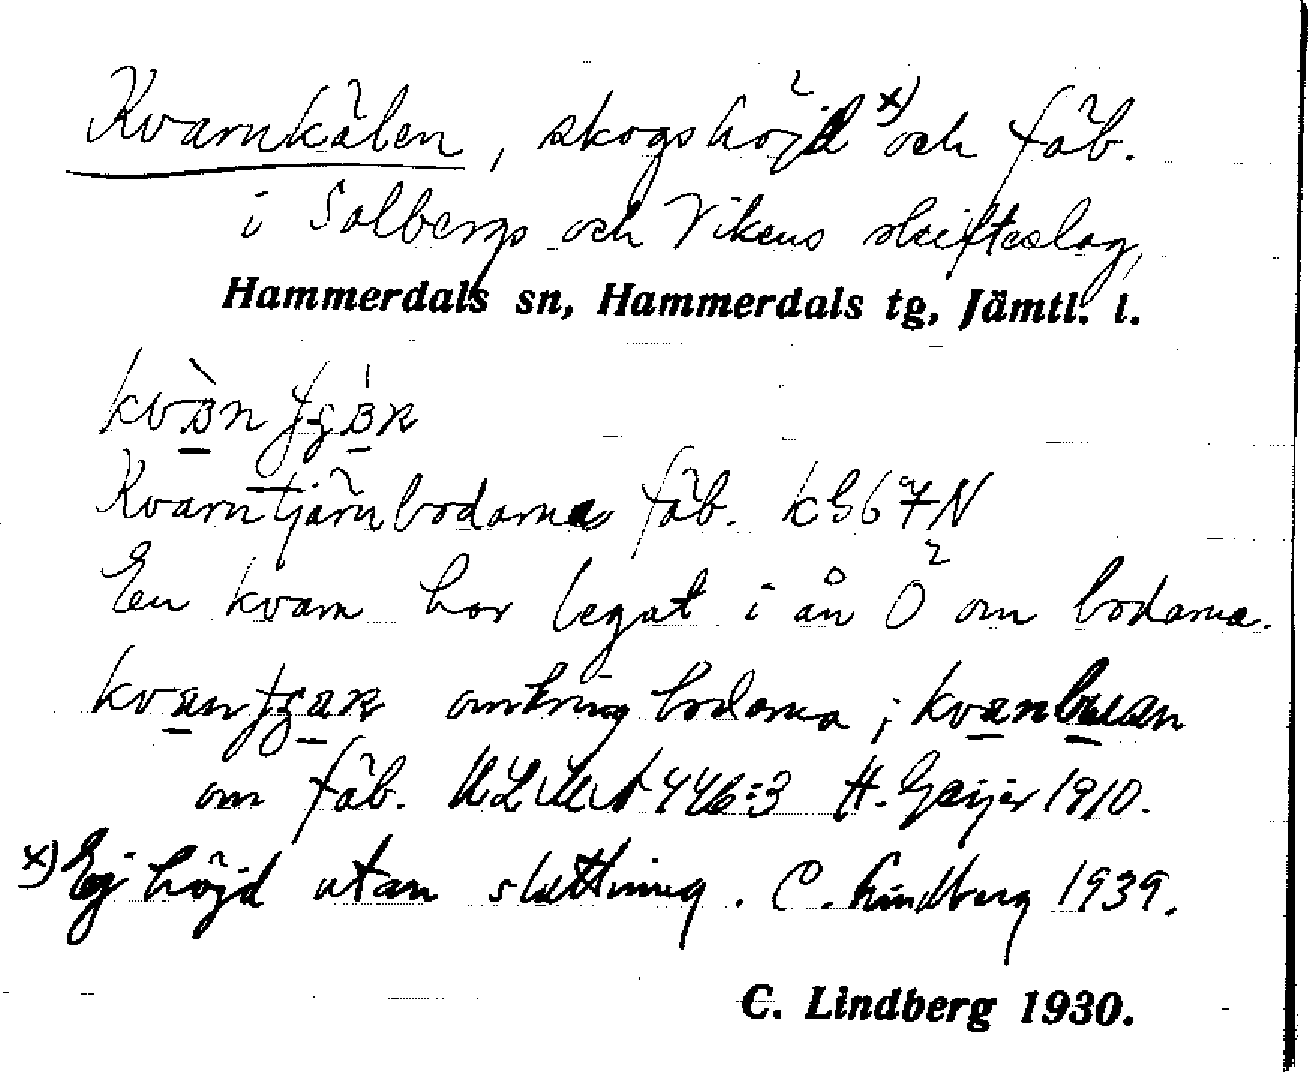 Kvarnkälen, skogshöjd x) och fäb.
i Solbergs och Vikens skifteslag,
Hammerdals sn, Hammerdals tg, Jämtl. l.
Kvarntjärnbodarna fäb. kG67N
En kvarn har legat i ån O om bodarna.
omkring bodarna ;
om fäb. ULMA 446:3 H. Geijer 1910.
x) Ej höjd utan sluttning. C. Lindberg 1939.
C. Lindberg 1930.